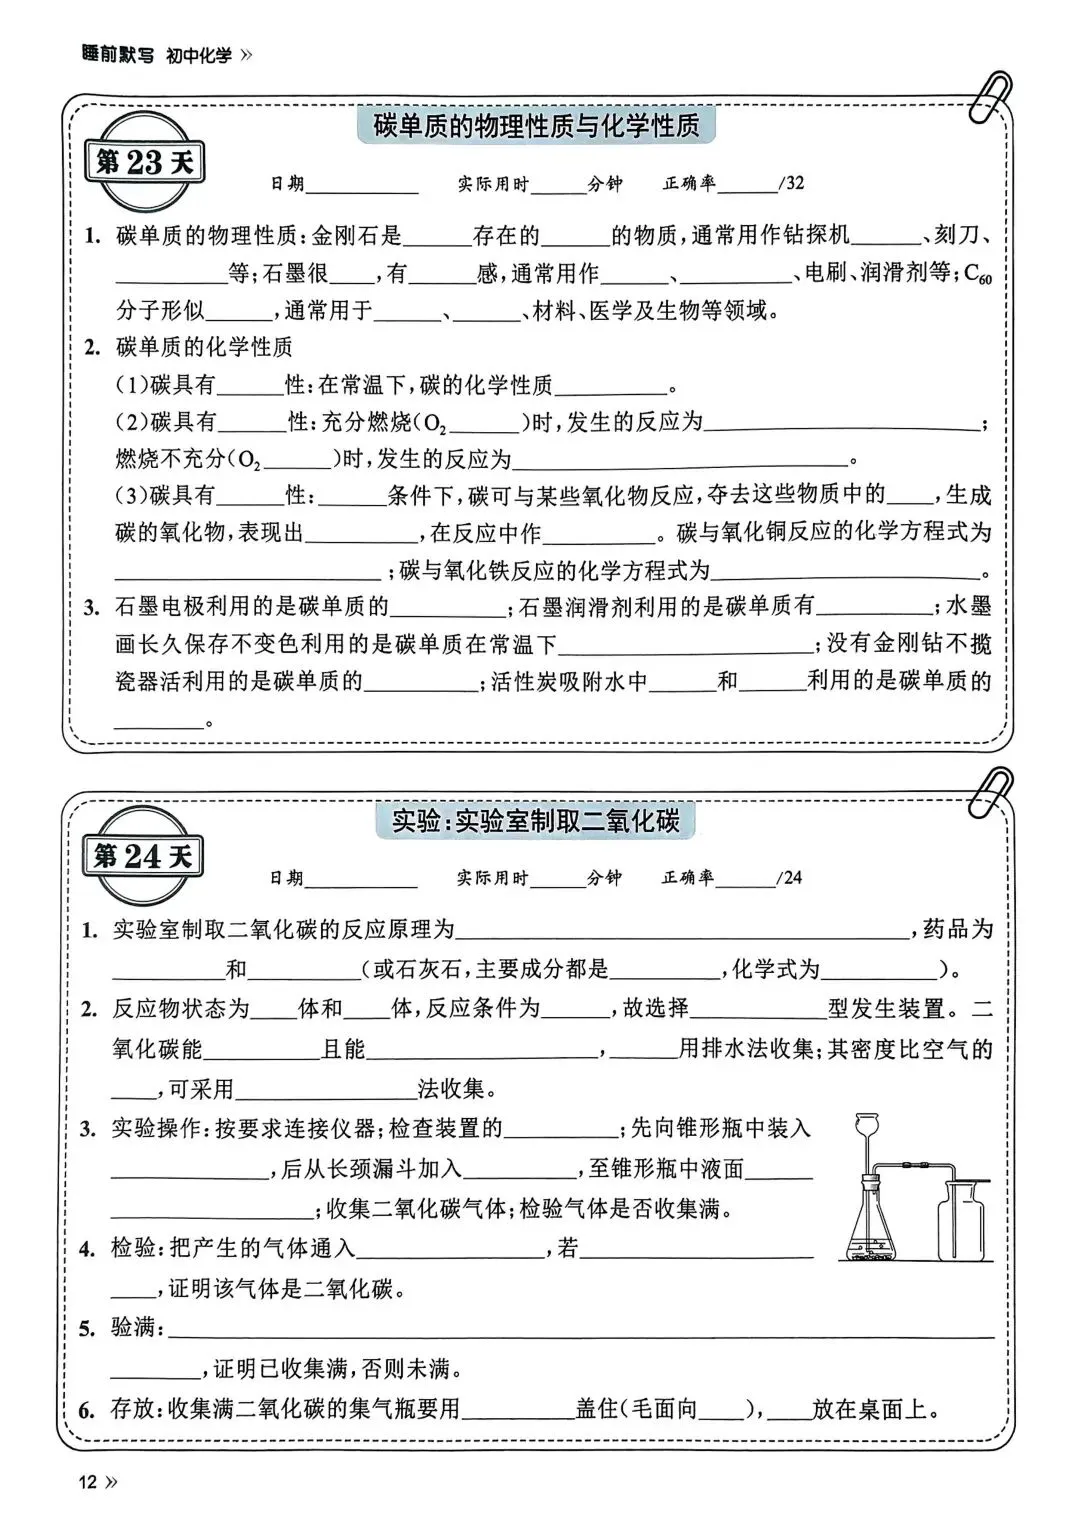 睡前默写 初中化学 »
碳单质的物理性质与化学性质
第23天
日期__________ 实际用时_____分钟 正确率_____/32
1. 碳单质的物理性质:金刚石是______存在的______的物质,通常用作钻探机______、刻刀、
__________等;石墨很____,有______感,通常用作______、__________、电刷、润滑剂等;C₆₀
分子形似______,通常用于______、______、材料、医学及生物等领域。
2. 碳单质的化学性质
(1)碳具有______性:在常温下,碳的化学性质__________。
(2)碳具有______性:充分燃烧(O₂______)时,发生的反应为________________________;
燃烧不充分(O₂______)时,发生的反应为______________________________。
(3)碳具有______性:______条件下,碳可与某些氧化物反应,夺去这些物质中的____,生成
碳的氧化物,表现出__________,在反应中作__________。碳与氧化铜反应的化学方程式为
________________________;碳与氧化铁反应的化学方程式为________________________。
3. 石墨电极利用的是碳单质的__________;石墨润滑剂利用的是碳单质有__________;水墨
画长久保存不变色利用的是碳单质在常温下______________________;没有金刚钻不揽
瓷器活利用的是碳单质的__________;活性炭吸附水中______和______利用的是碳单质的
________。
实验:实验室制取二氧化碳
第24天
日期__________ 实际用时_____分钟 正确率_____/24
1. 实验室制取二氧化碳的反应原理为________________________________________,药品为
__________和__________(或石灰石,主要成分都是__________,化学式为__________)。
2. 反应物状态为____体和____体,反应条件为______,故选择____________型发生装置。二
氧化碳能__________且能____________________,______用排水法收集;其密度比空气的
____,可采用________________法收集。
3. 实验操作:按要求连接仪器;检查装置的__________;先向锥形瓶中装入
______________,后从长颈漏斗加入__________,至锥形瓶中液面______
__________________;收集二氧化碳气体;检验气体是否收集满。
4. 检验:把产生的气体通入________________,若____________________
____,证明该气体是二氧化碳。
5. 验满:________________________________________________________________________
________,证明已收集满,否则未满。
6. 存放:收集满二氧化碳的集气瓶要用__________盖住(毛面向____),____放在桌面上。
12 »